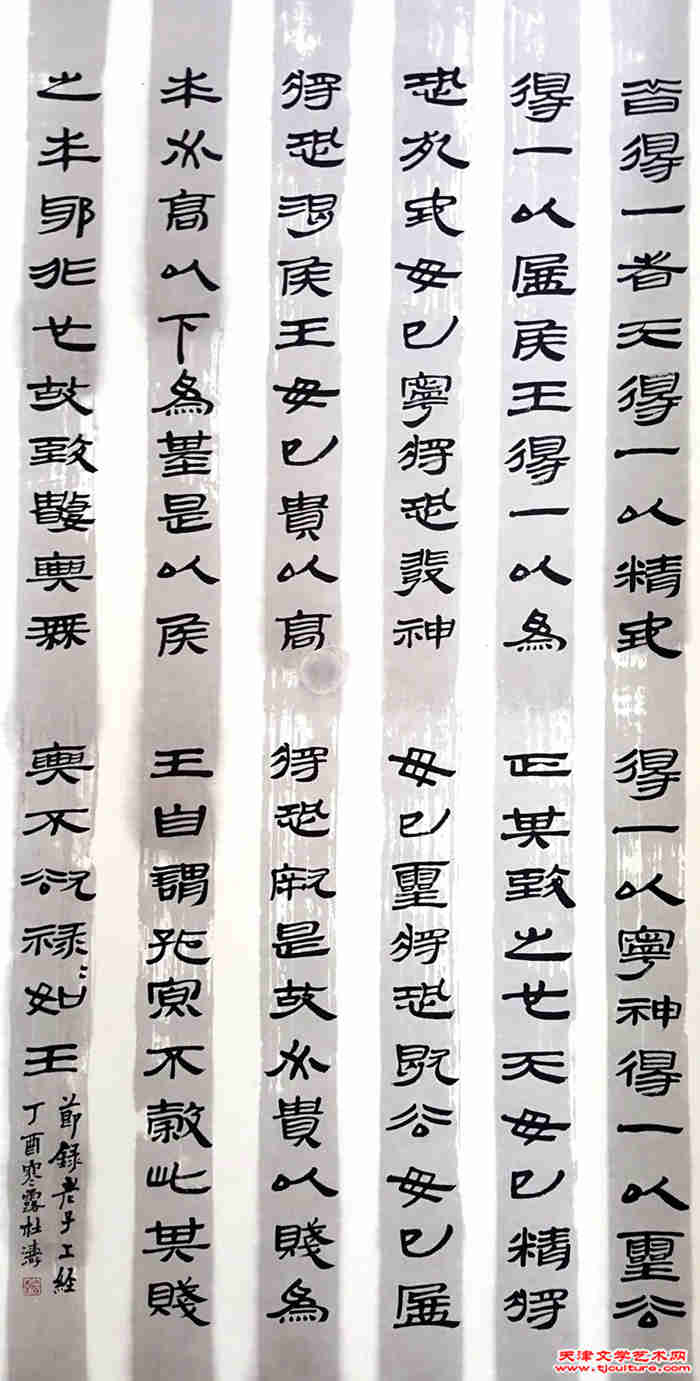 昔得一者天得一以精地得一以寧神得一以霝谷
得一以盈侯王得一以為正其致之也天毋已精將
恐地毋已寧將恐發神毋已霝將恐歇谷毋已盈
將恐渴侯王毋已貴以高將恐欮是故必貴以賤為
本必高以下為基是以侯王自謂孤寡不穀此其賤
之本邪非也故致數輿無輿不欲祿〻如玉
節錄老子上經
丁酉寒露杜濤
天津文学艺术网
www.tjculture.com